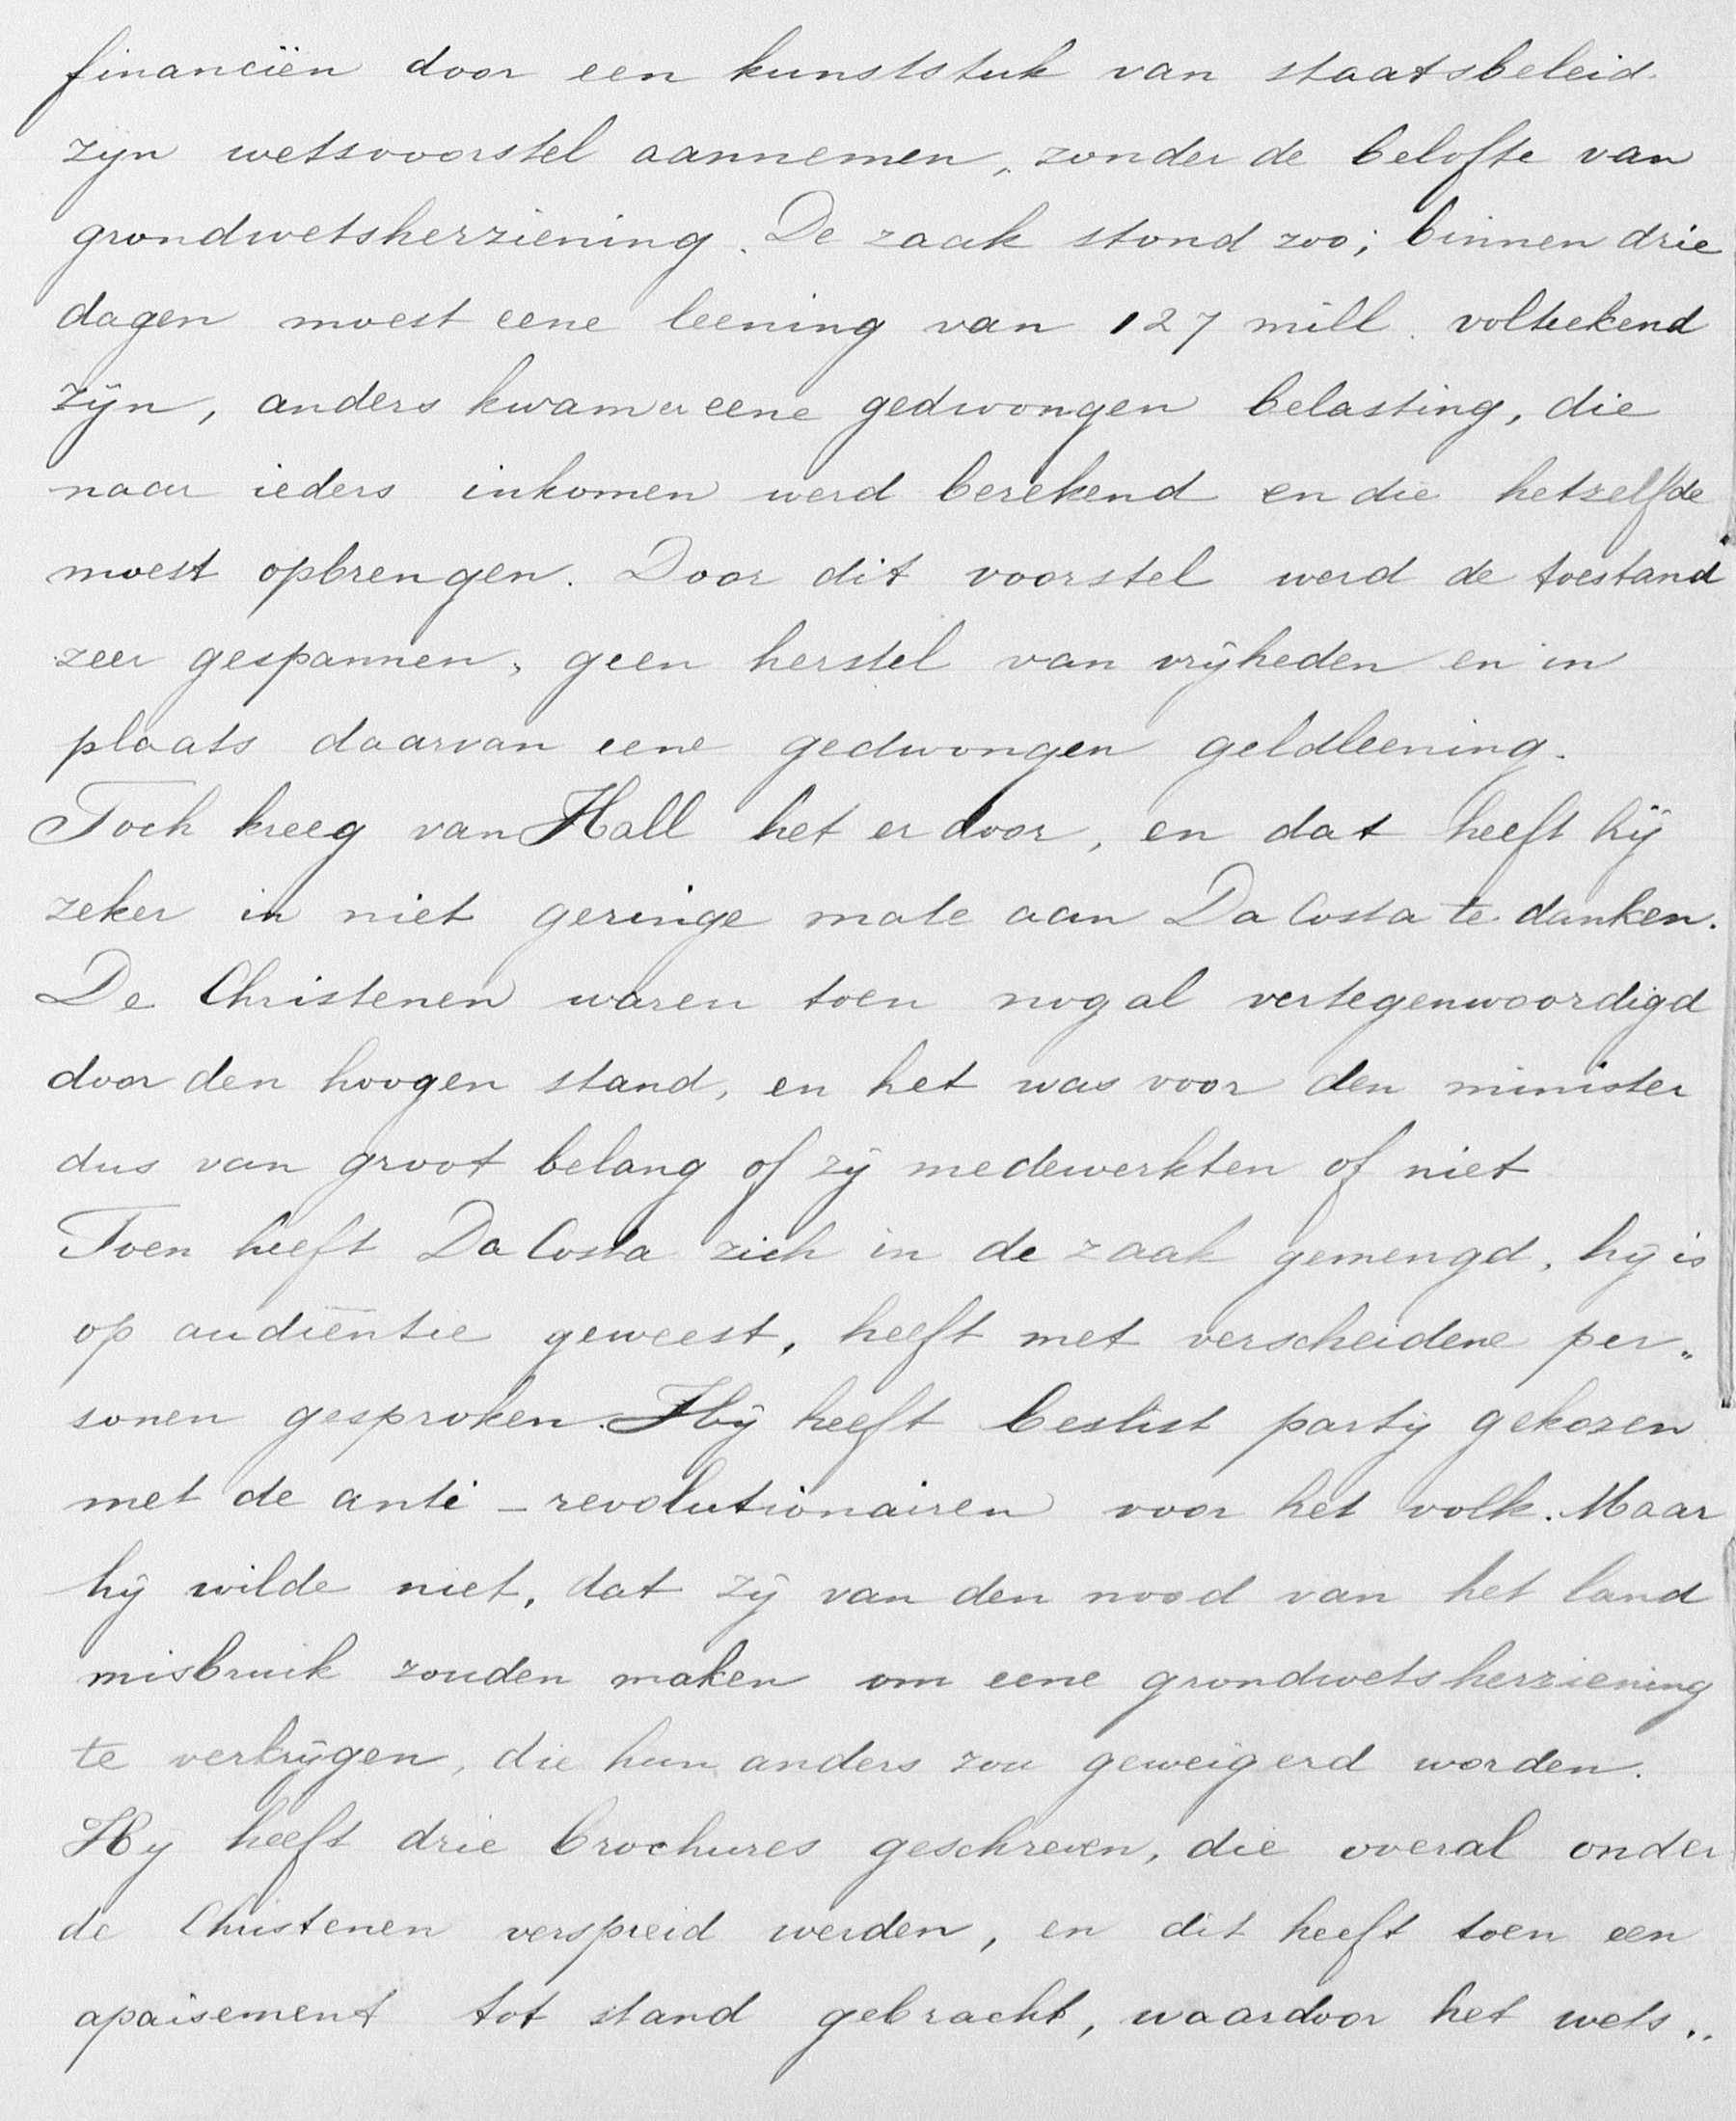 financiën door een kunststuk van staatsbeleid
zijn wetsvoorstel aannemen, zonder de belofte van
grondwetsherziening. De zaak stond zoo; binnen drie
dagen moest eene leening van 127 mill. volteekend
zijn, anders kwam er eene gedwongen belasting, die
naar ieders inkomen werd berekend en die hetzelfde
moest opbrengen. Door dit voorstel werd de toestand
zeer gespannen, geen herstel van vrijheden en in
plaats daarvan eene gedwongen geldleening.
Toch kreeg van Hall het er door, en dat heeft hij
zeker in niet geringe mate aan Da Costa te danken.
De Christenen waren toen nog al vertegenwoordigd
door den hoogen stand, en het was voor den minister
dus van groot belang of zij medewerkten of niet
Toen heeft Da Costa zich in de zaak gemengd, hij is
op audiëntie geweest, heeft met verscheidene per„
sonen gesproken. Hij heeft beslist partij gekozen
met de anti-revolutionairen voor het volk. Maar
hij wilde niet, dat zij van den nood van het land
misbruik zouden maken om eene grondwetsherziening
te verkrijgen, die hun anders zou geweigerd worden.
Hij heeft drie brochures geschreven, die overal onder
de Christenen verspreid werden, en dit heeft toen een
apaisement tot stand gebracht, waardoor het wets„